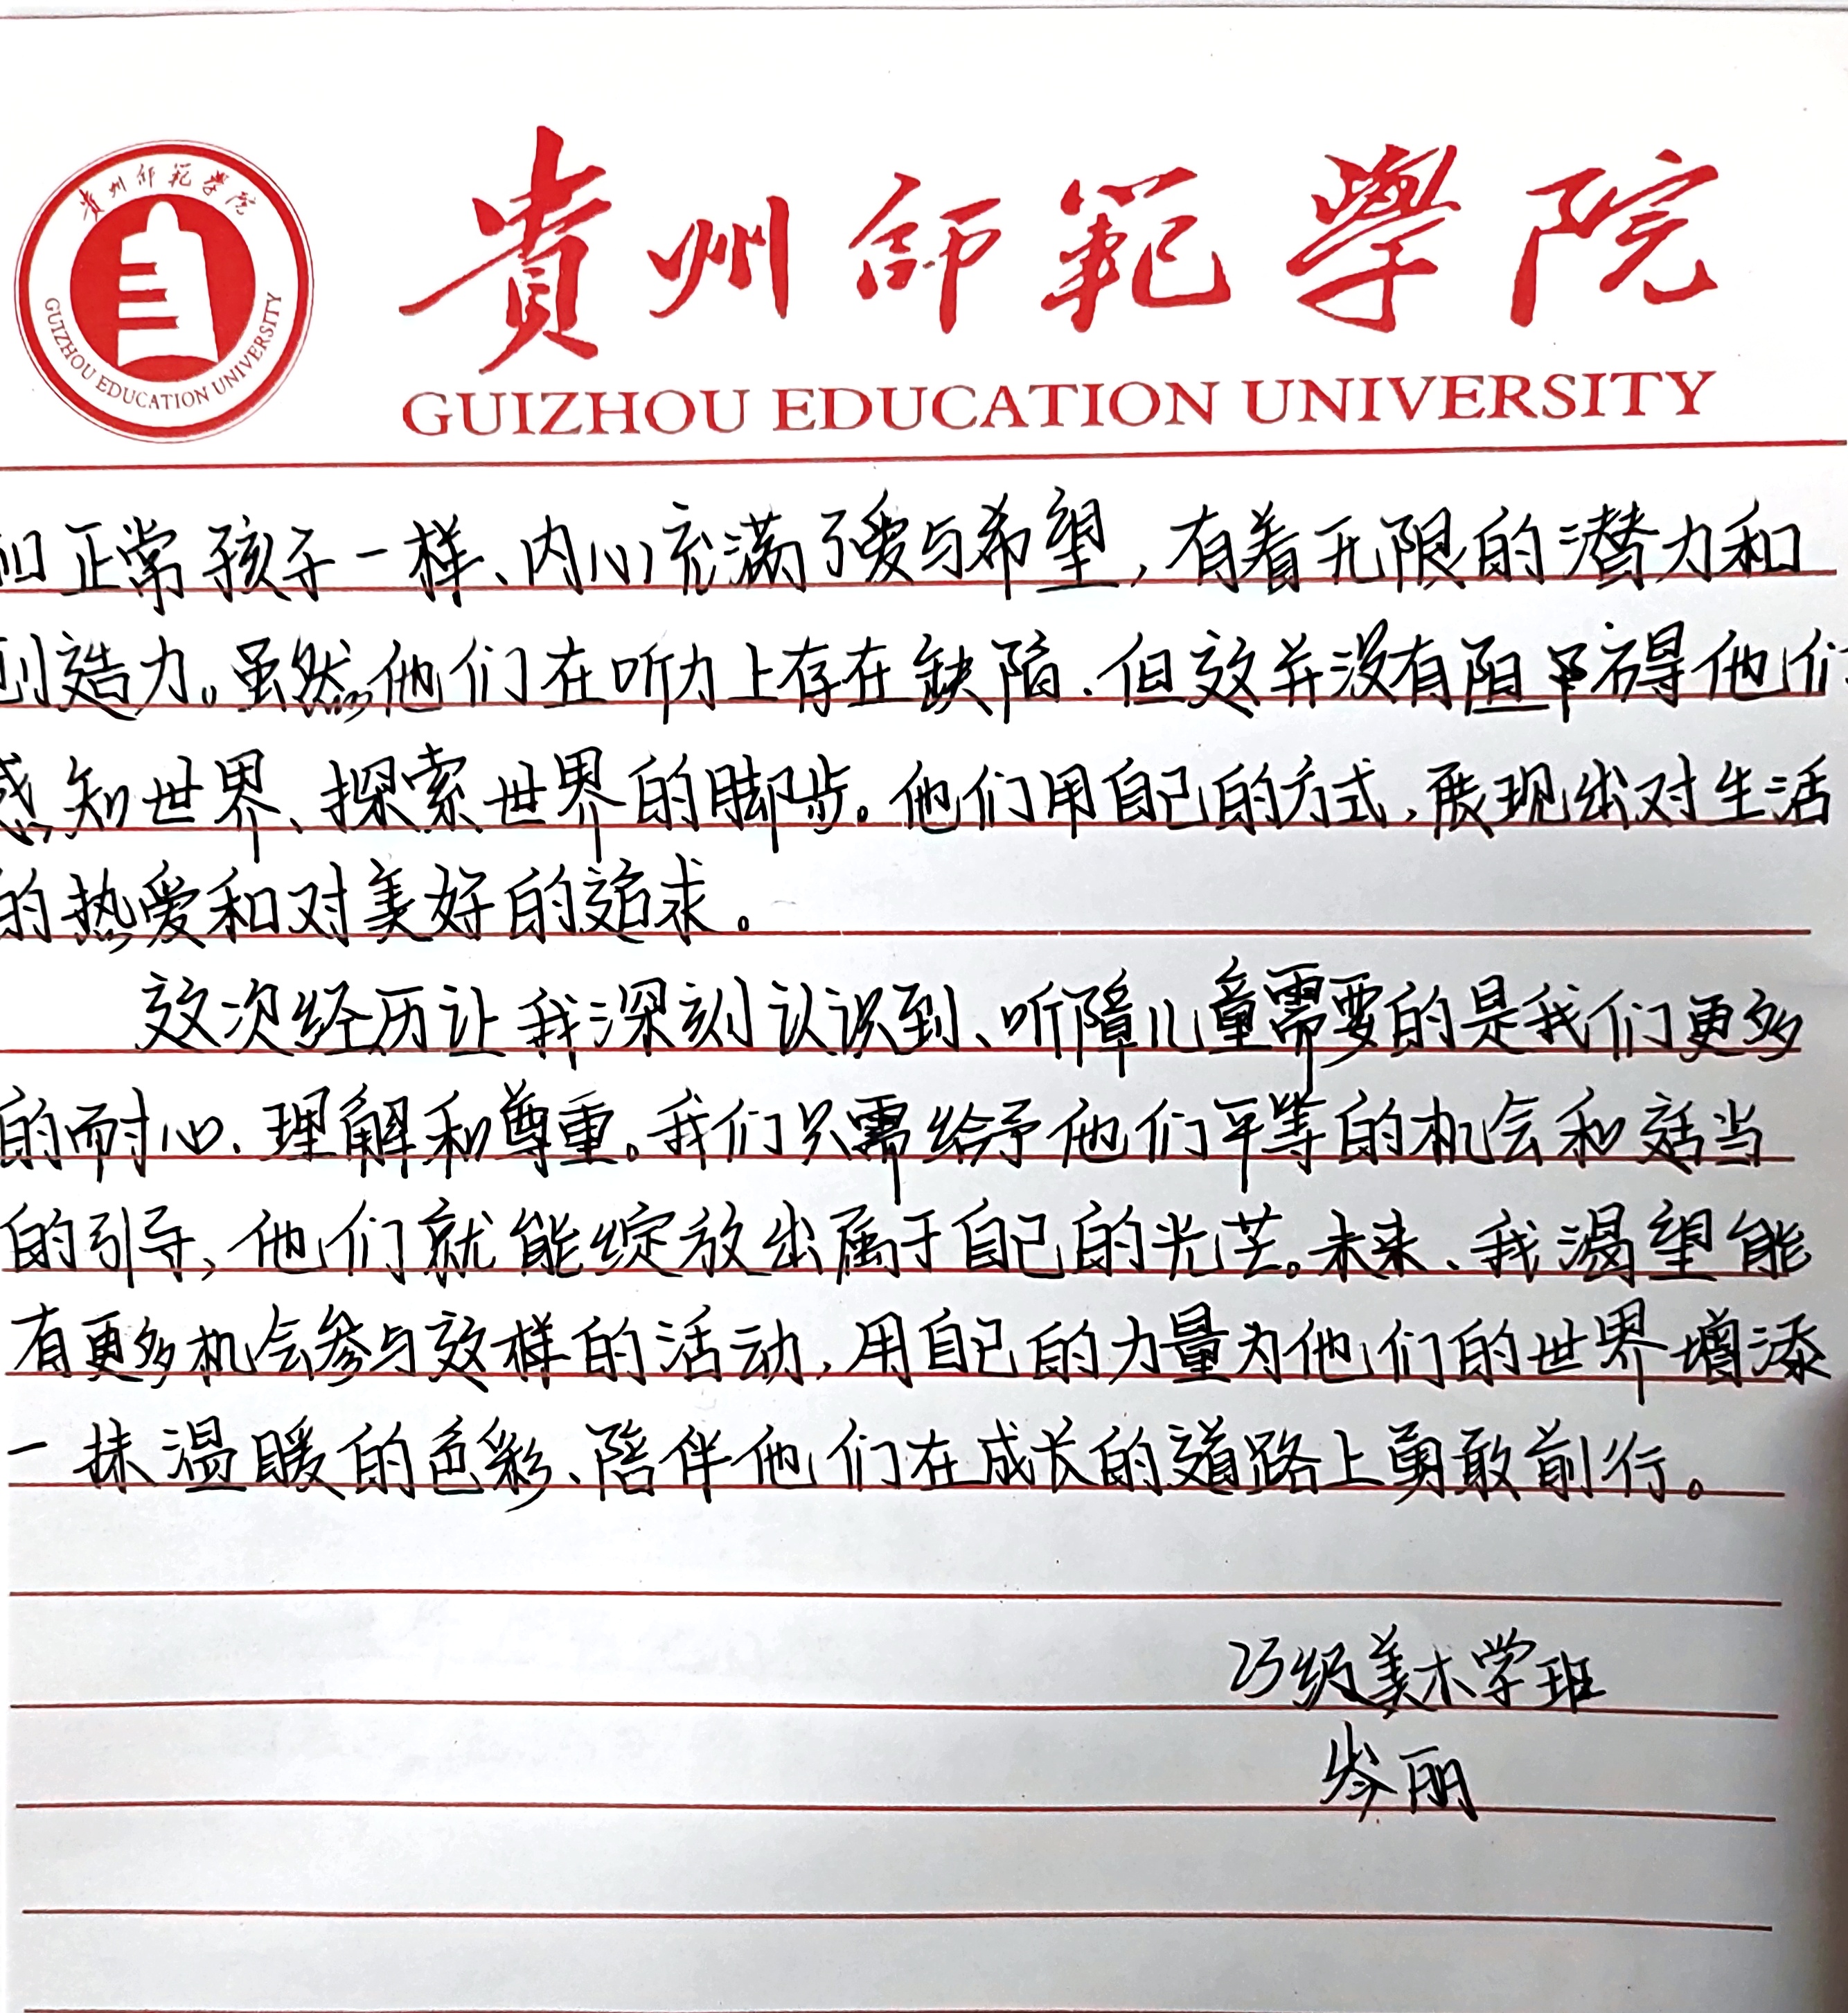 貴州师範學院
GUIZHOU EDUCATION UNIVERSITY
貴州师範學院
GUIZHOU EDUCATION UNIVERSITY
和正常孩子一样、内心充满了爱与希望，有着无限的潜力和
创造力。虽然他们在听力上存在缺陷、但这并没有阻碍他们
感知世界、探索世界的脚步。他们用自己的方式，展现出对生活
的热爱和对美好的追求。
这次经历让我深刻认识到、听障儿童需要的是我们更多
的耐心、理解和尊重。我们只需给予他们平等的机会和适当
的引导，他们就能绽放出属于自己的光芒。未来、我渴望能
有更多机会参与这样的活动，用自己的力量为他们的世界增添
一抹温暖的色彩、陪伴他们在成长的道路上勇敢前行。
23级美术学班
岑丽